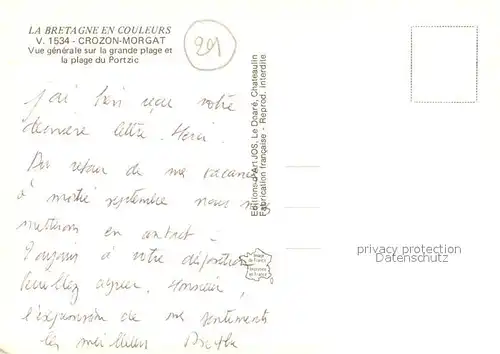 LA BRETAGNE EN COULEURS
V. 1534 - CROZON-MORGAT
Vue générale sur la grande plage et
la plage du Portzic
291
j'ai bien reçu votre
dernière lettre. Merci.
Au retour de mes vacances
à mi septembre nous nous
mettrons en contact.
Toujours à votre disposition
Veuillez agréer, Monsieur,
l'expression de mes sentiments
les meilleurs
Editions d'Art JOS. Le Doaré, Chateaulin
Fabrication française - Reprod. interdite
Image de France
Imprimée en France
privacy protection
Datenschutz